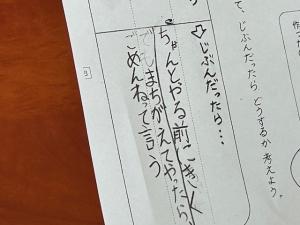 て、じぶんだったら どうするか 考えよう。
⇩じぶんだったら…
ちゃんとやる前にきく
でもまちがえてやったら
ごめんねって言う